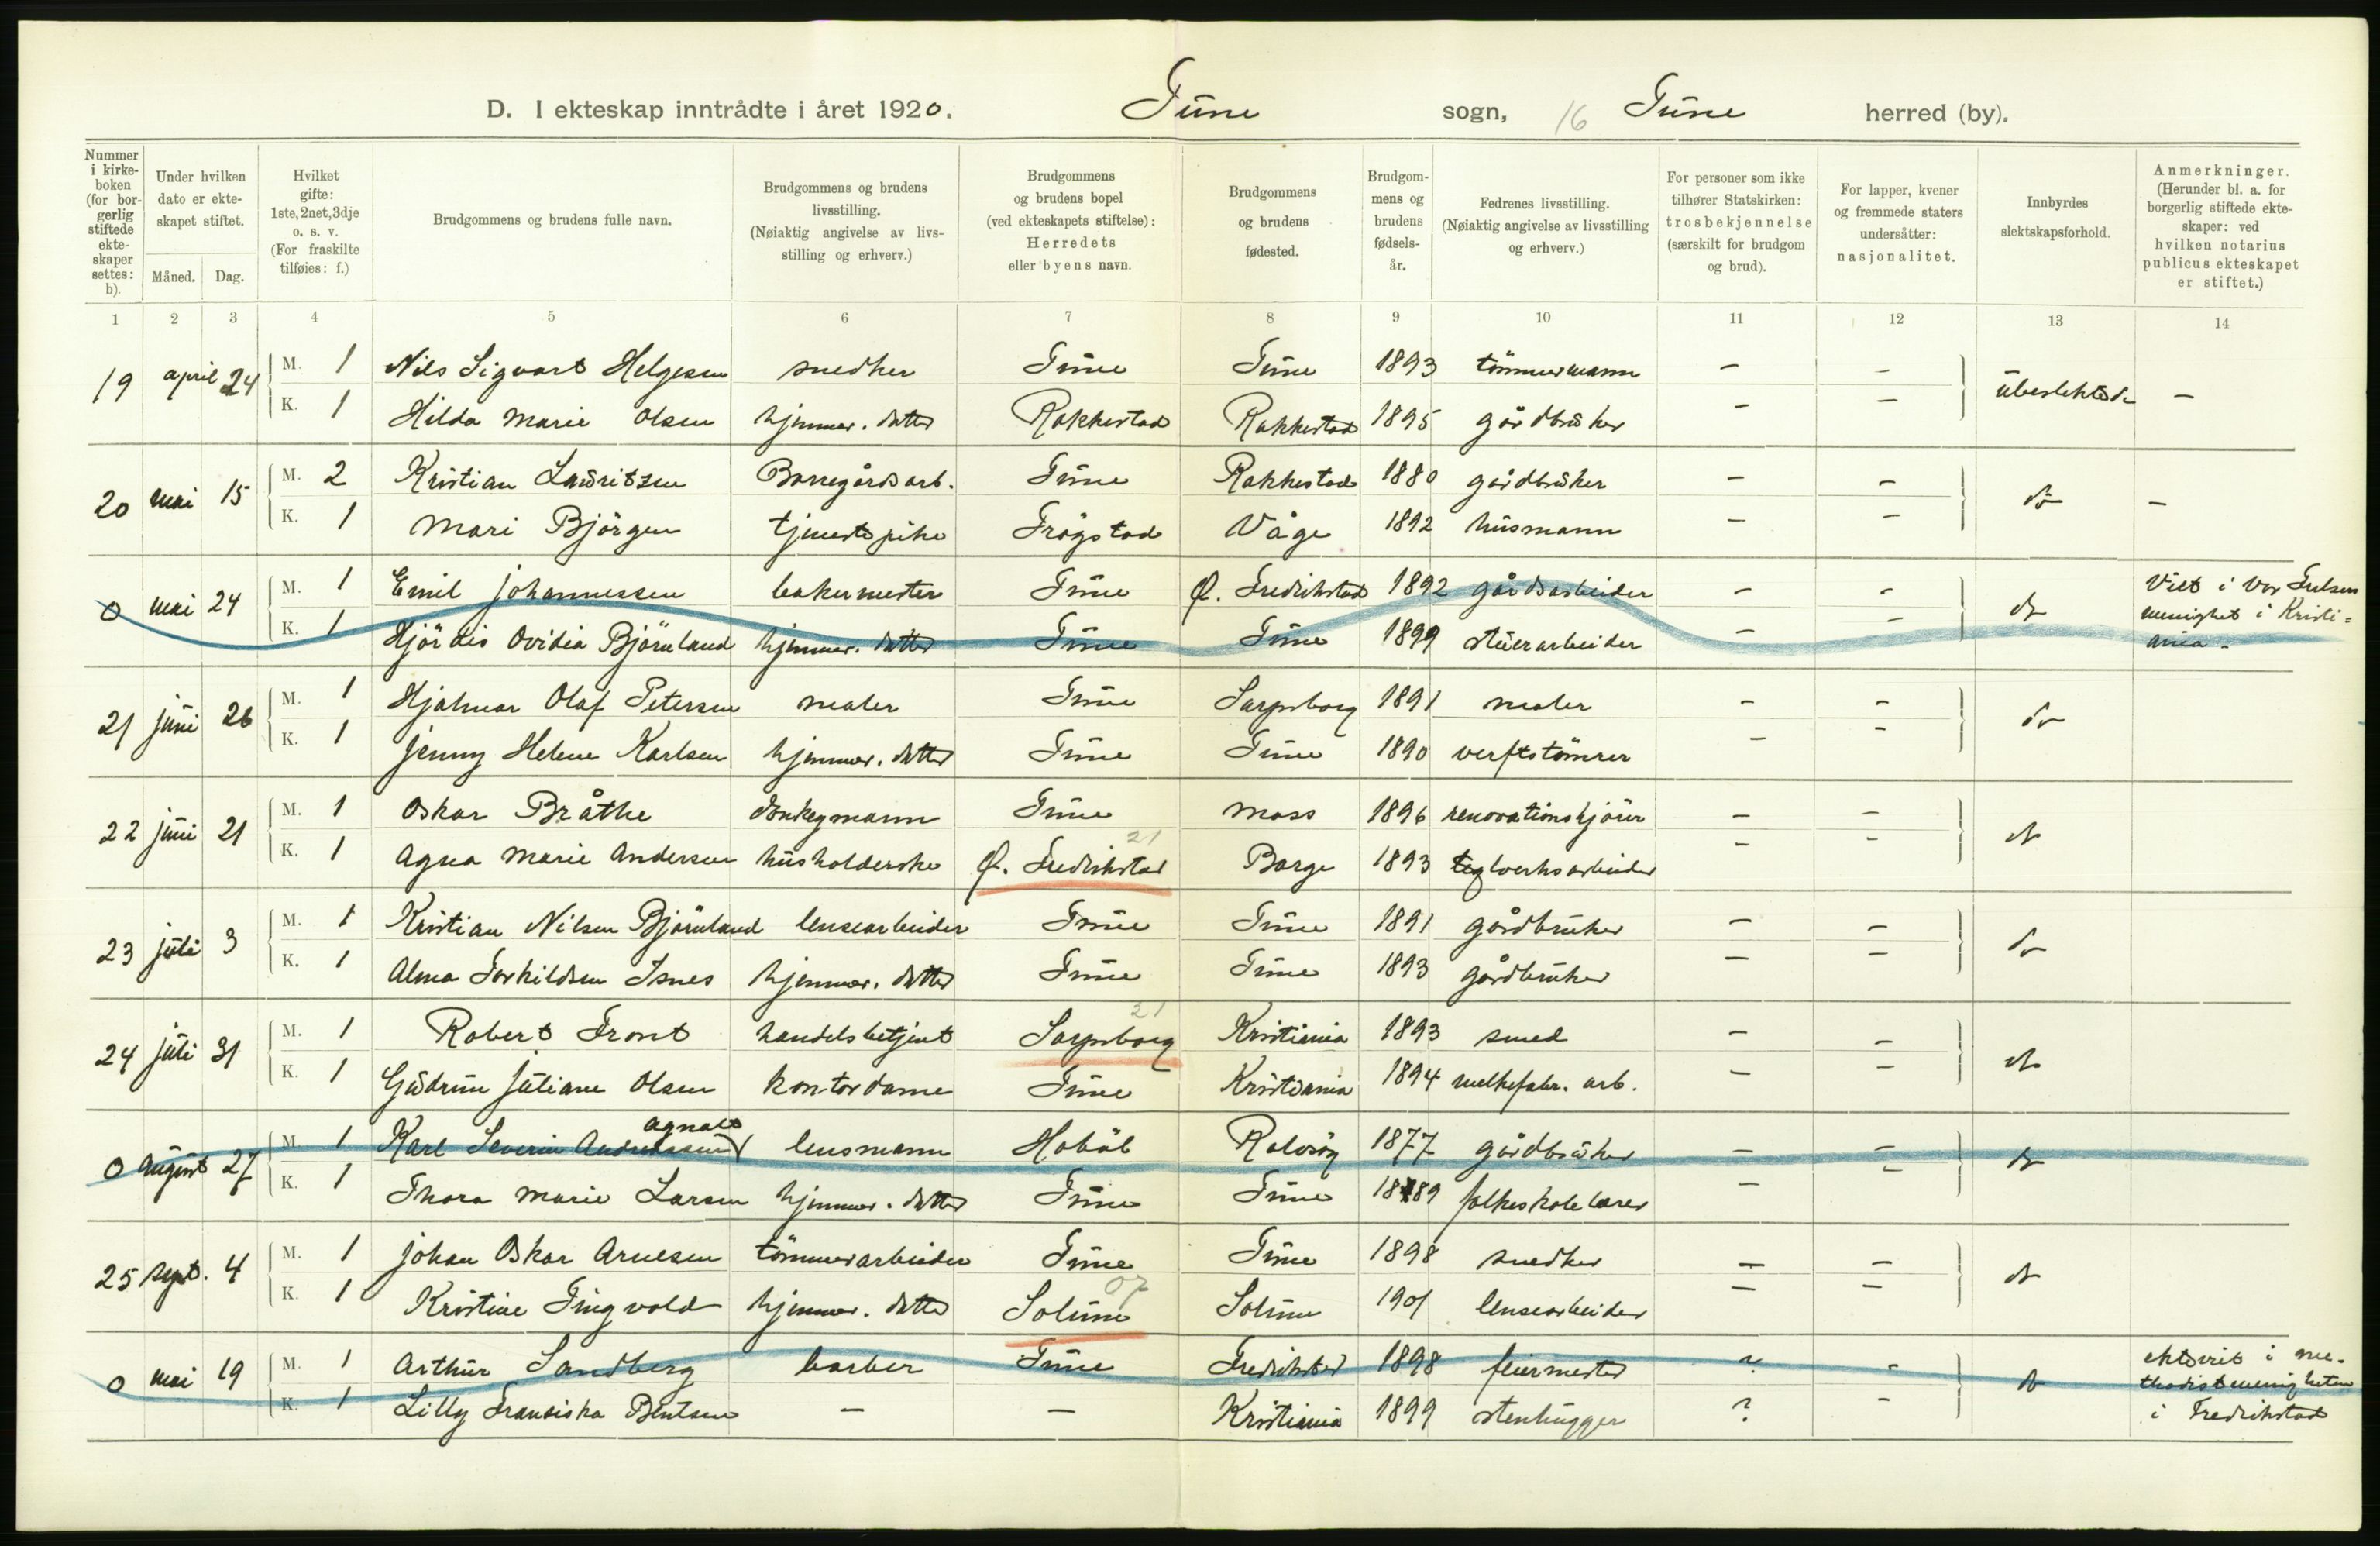 D. I ekteskap inntrådte i året 1920. Tune sogn, 16 Tune herred (by).
Nummer i kirkeboken (for borgerlig stiftede ekteskaper settes: b).
Under hvilken dato er ekteskapet stiftet.
Måned. Dag.
Hvilket gifte: 1ste, 2net, 3dje o. s. v. (For fraskilte tilføies: f.)
Brudgommens og brudens fulle navn.
Brudgommens og brudens livsstilling. (Nøiaktig angivelse av livsstilling og erhverv.)
Brudgommens og brudens bopel (ved ekteskapets stiftelse): Herredets eller byens navn.
Brudgommens og brudens fødested.
Brudgommens og brudens fødselsår.
Fedrenes livsstilling. (Nøiaktig angivelse av livsstilling og erhverv.)
For personer som ikke tilhører Statskirken: trosbekjennelse (særskilt for brudgom og brud).
For lapper, kvener og fremmede staters undersåtter: nasjonalitet.
Innbyrdes slektskapsforhold.
Anmerkninger. (Herunder bl. a. for borgerlig stiftede ekteskaper: ved hvilken notarius publicus ekteskapet er stiftet.)
1 2 3 4 5 6 7 8 9 10 11 12 13 14
19 april 24 M. 1 Nils Sigvart Helgesen snedker Tune Tune 1893 tömmermann - - ubeslektede -
K. 1 Hilda Marie Olsen hjemmev. datter Rakkestad Rakkestad 1895 gårdbruker - -
20 mai 15 M. 2 Kristian Lauritzen Borregårdsarb. Tune Rakkestad 1880 gårdbruker - - do -
K. 1 Mari Björgen tjenestepike Trögstad Våge 1892 husmann - -
0 mai 24 M. 1 Emil Johannessen bakermester Tune Ø. Fredrikstad 1892 gårdsarbeider - - do Viet i Vor Frelsers
K. 1 Hjördis Ovidia Björnland hjemmev. datter Tune Tune 1899 stuerarbeider - - menighet i Kristi=
ania.
21 juni 26 M. 1 Hjalmar Olaf Petersen maler Tune Sarpsborg 1891 maler - - do
K. 1 Jenny Helene Karlsen hjemmev. datter Tune Tune 1890 verftstömrer - -
22 juni 21 M. 1 Oskar Bråthe donkeymann Tune Moss 1896 renovationskjörer - - do
21
K. 1 Agna Marie Andersen husholderske Ø. Fredrikstad Borge 1893 teglverksarbeider -
23 juli 3 M. 1 Kristian Nilsen Björnland lensearbeider Tune Tune 1891 gårdbruker - - do
K. 1 Alma Torkildsen Isnes hjemmev. datter Tune Tune 1893 gårdbruker - -
21
24 juli 31 M. 1 Robert Front handelsbetjent Sarpsborg Kristiania 1893 smed - - do
K. 1 Gudrun Juliane Olsen kontordame Tune Kristiania 1894 melkefabr. arb. - -
Agnalt
0 august 27 M. 1 Karl Severin Andreassen lensmann Hobøl Rolvsøy 1877 gårdbruker - - do
K. 1 Thora Marie Larsen hjemmev. datter Tune Tune 1889 folkeskolelærer - -
25 sept. 4 M. 1 Johan Oskar Arnesen tömmerarbeider Tune Tune 1898 snedker - - do
07
K. 1 Kristine Tingvold hjemmev. datter Solum Solum 1901 lensearbeider - -
0 mai 19 M. 1 Arthur Sandberg barber Tune Fredrikstad 1898 feiermester ? - do ekteviet i me-
K. 1 Lilly Fransiska Bentsen - - Kristiania 1899 stenhugger ? - thodistmenigheten
i Fredrikstad